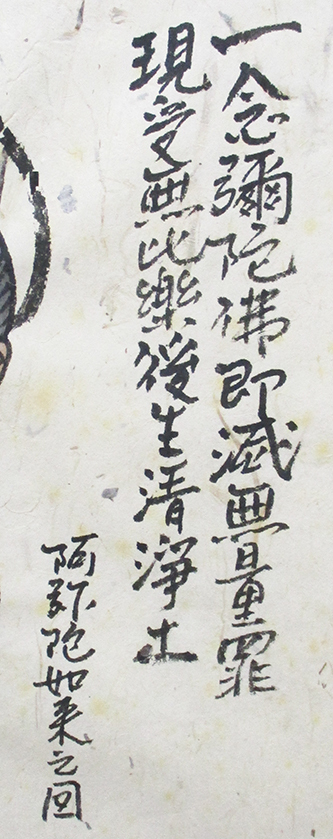 一念彌陀佛即滅無量罪
現受無比樂後生清淨土
阿弥陀如来之図